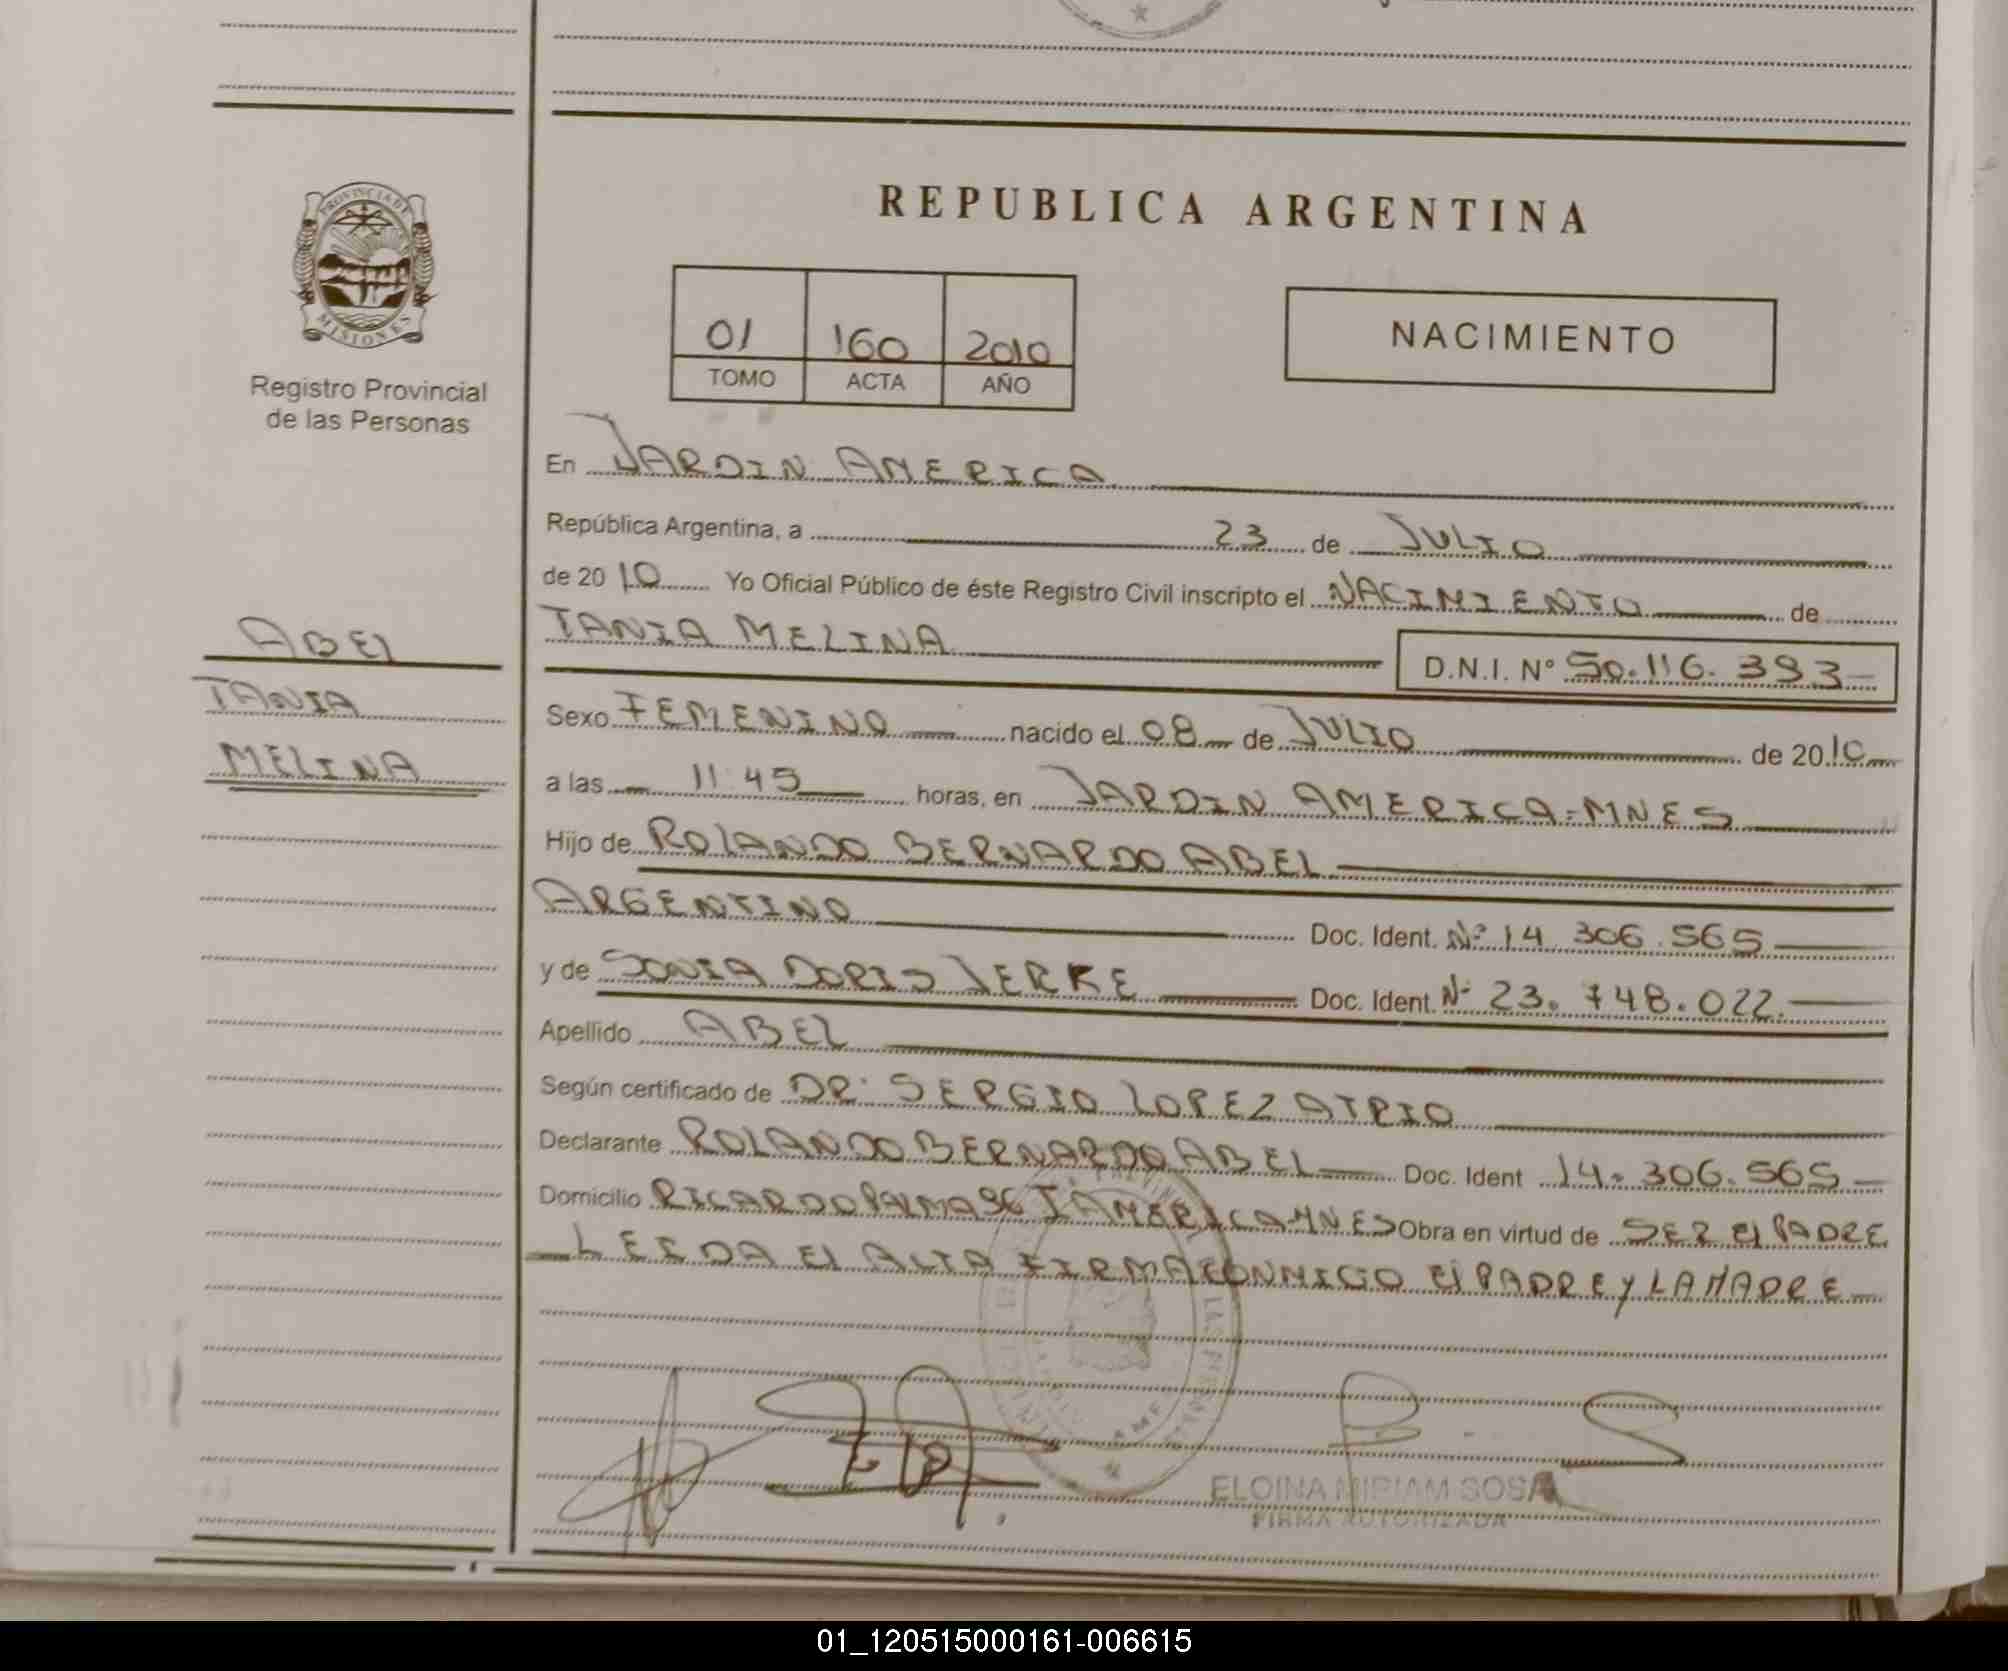 PROVINCIA DE
MISIONES
Registro Provincial
de las Personas
ABEL
TANIA
MELINA
REPUBLICA ARGENTINA
01 160 2010
TOMO ACTA AÑO
NACIMIENTO
En JARDIN AMERICA
República Argentina, a 23 de JULIO
de 20 10 Yo Oficial Público de éste Registro Civil inscripto el NACIMIENTO de
TANIA MELINA D.N.I. Nº 50.116.393
Sexo FEMENINO nacido el 08 de JULIO de 20 10
a las 11:45 horas, en JARDIN AMERICA-MNES
Hijo de ROLANDO BERNARDO ABEL
ARGENTINO Doc. Ident. Nº 14 306.565
y de SONIA DORIS JERKE Doc. Ident. Nº 23.748.022.
Apellido ABEL
Según certificado de DR. SERGIO LOPEZ ATRIO
Declarante ROLANDO BERNARDO ABEL Doc. Ident 14.306.565
Domicilio RICARDO PALMA J AMERICA-MNES Obra en virtud de SER EL PADRE
LEIDA EL ACTA FIRMA CONMIGO EL PADRE Y LA MADRE
ELOINA MIRIAM SOSA
FIRMA AUTORIZADA
01_120515000161-006615